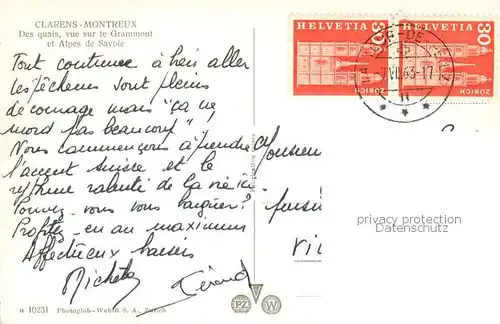 CLARENS-MONTREUX
Des quais, vue sur le Grammont
et Alpes de Savoie
Tout continue à bien aller
les pêcheurs sont pleins
de courage mais "ça ne
mord pas beaucoup"!
Nous commençons à prendre
l'accent suisse et le
rythme ralenti de la vie ici.
Pouvez-vous vous baigner?
Profitez-en au maximum
Affectueux baisers
Michèle Gérard
n 10231 Photoglob-Wehrli S. A., Zürich
PZ W
HELVETIA HELVETIA
30 30
ZÜRICH ZÜRICH
63-17
Monsieur
privacy protection
Datenschutz